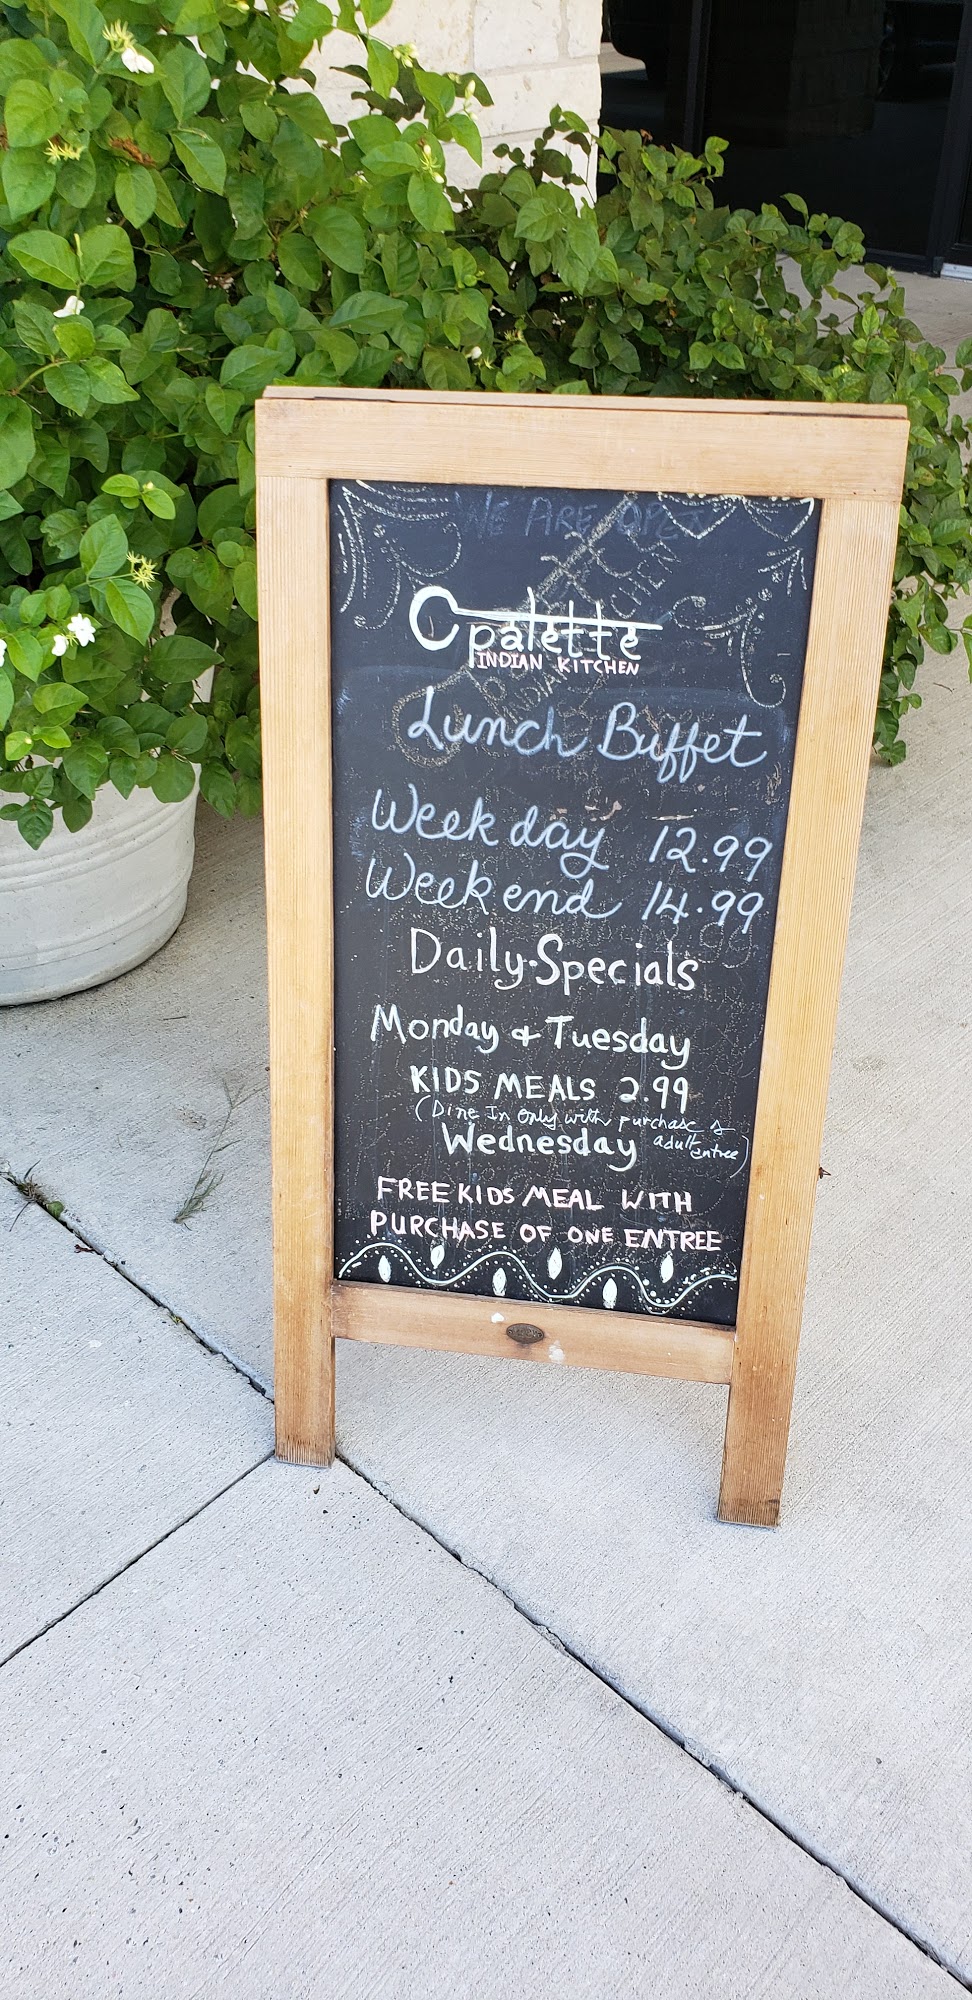 WE ARE OPEN
palette
INDIAN KITCHEN
Lunch Buffet
Weekday 12.99
Weekend 14.99
Daily Specials
Monday & Tuesday
KIDS MEALS 2.99
(Dine In only with purchase of
adult entree)
Wednesday
FREE KIDS MEAL WITH
PURCHASE OF ONE ENTREE